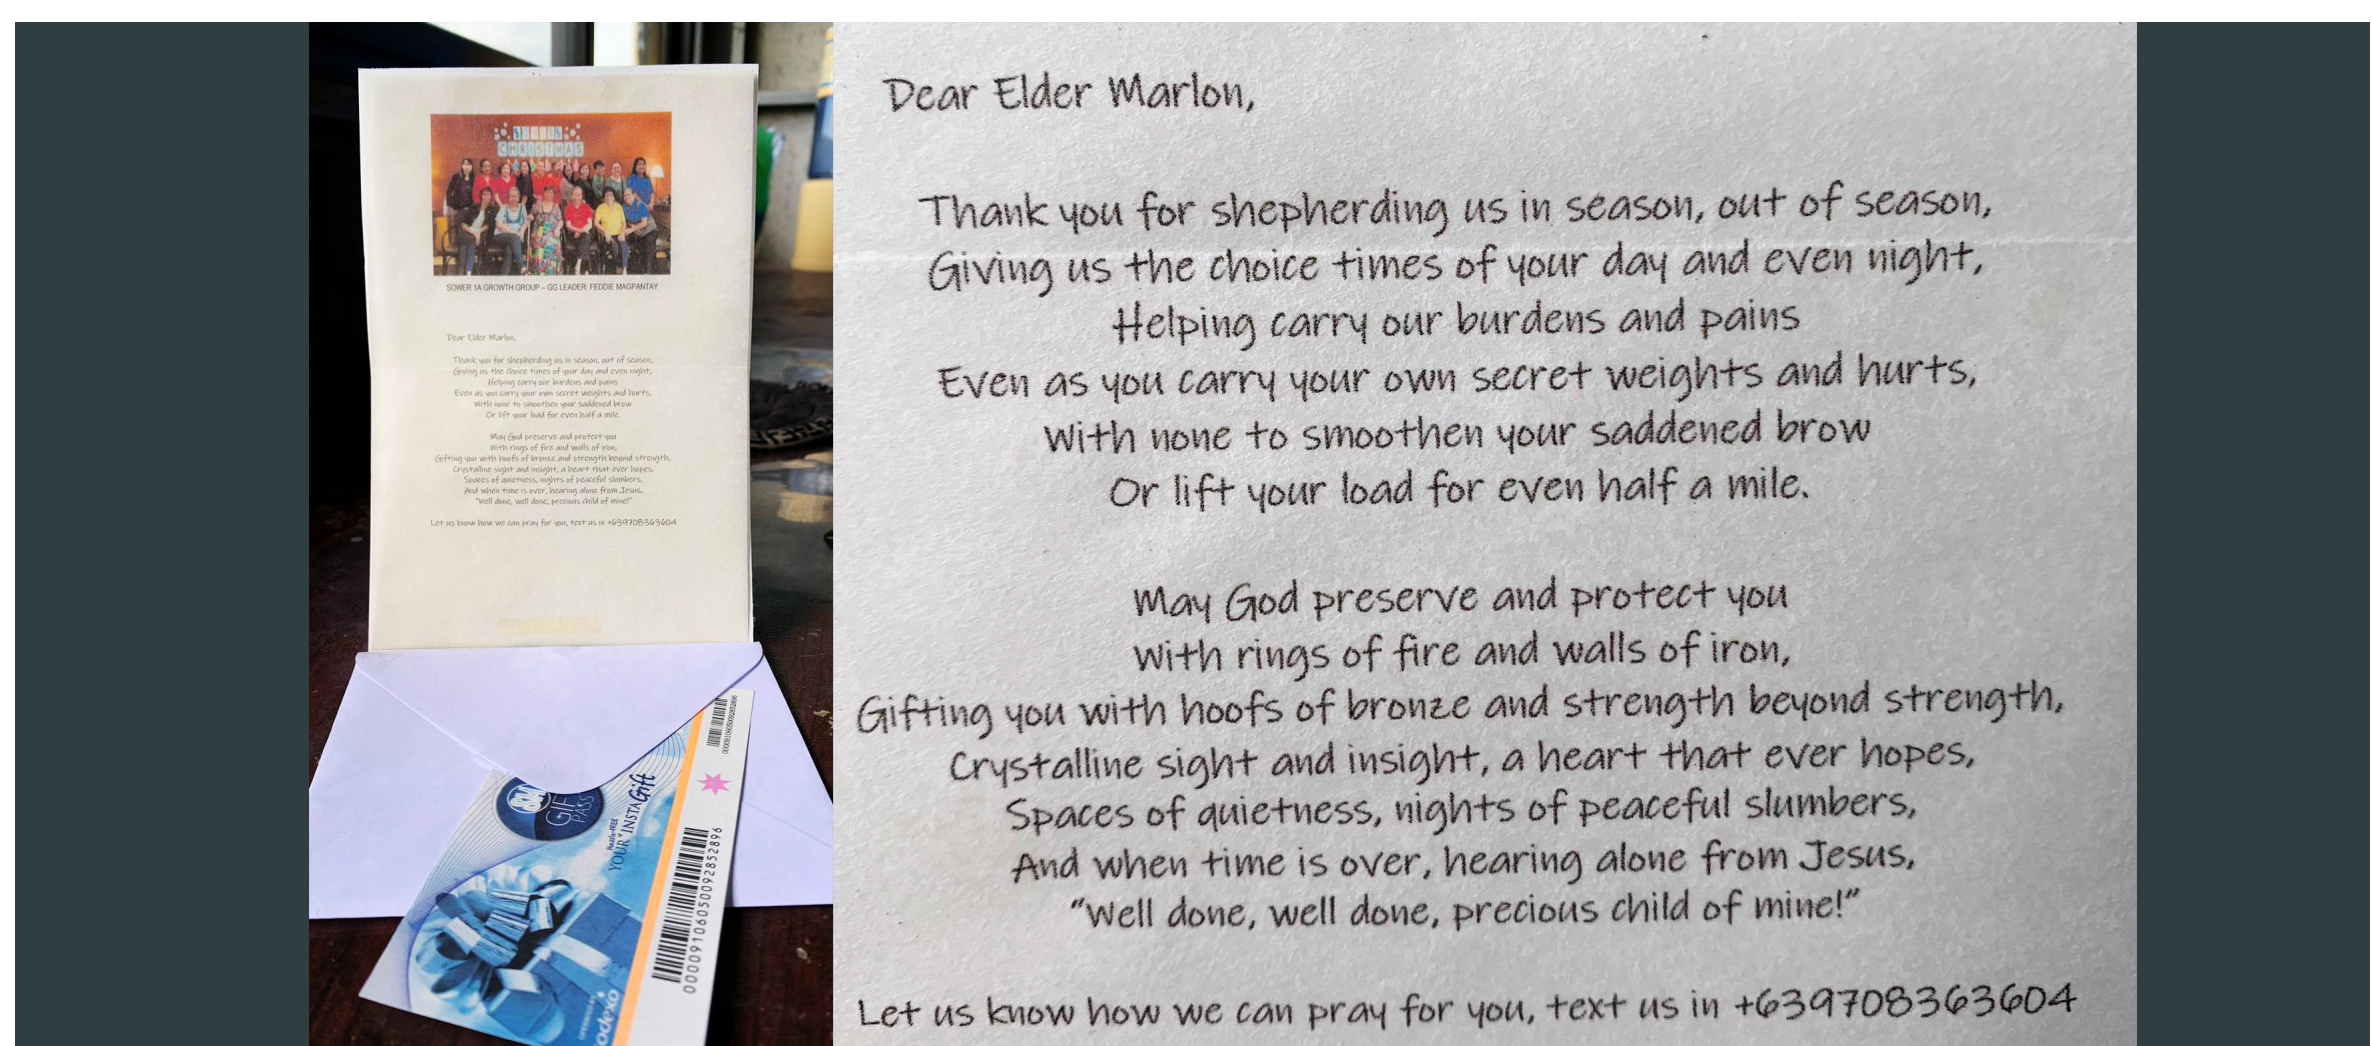 CHRISTMAS
SOWER 1A GROWTH GROUP – GG LEADER: FEDDIE MAGPANTAY
Dear Elder Marlon,
Thank you for shepherding us in season, out of season,
Giving us the choice times of your day and even night,
Helping carry our burdens and pains
Even as you carry your own secret weights and hurts,
With none to smoothen your saddened brow
Or lift your load for even half a mile.
May God preserve and protect you
With rings of fire and walls of iron,
Gifting you with hoofs of bronze and strength beyond strength,
Crystalline sight and insight, a heart that ever hopes,
Spaces of quietness, nights of peaceful slumbers,
And when time is over, hearing alone from Jesus,
"Well done, well done, precious child of mine!"
Let us know how we can pray for you, text us in +639708363604
SM
GIFT
PASS
Hassle-FREE
YOUR INSTA Gift
00009106050092852896
00009106050092852896
OPERATED BY
sodexo
Dear Elder Marlon,
Thank you for shepherding us in season, out of season,
Giving us the choice times of your day and even night,
Helping carry our burdens and pains
Even as you carry your own secret weights and hurts,
With none to smoothen your saddened brow
Or lift your load for even half a mile.
May God preserve and protect you
With rings of fire and walls of iron,
Gifting you with hoofs of bronze and strength beyond strength,
Crystalline sight and insight, a heart that ever hopes,
Spaces of quietness, nights of peaceful slumbers,
And when time is over, hearing alone from Jesus,
"Well done, well done, precious child of mine!"
Let us know how we can pray for you, text us in +639708363604